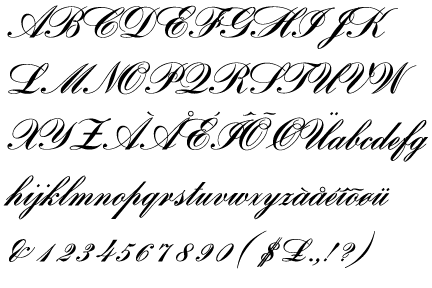 ABCDEFGHIJK
LMNOPQRSTUVW
XYZÀÅÉÎÕØÜabcdefg
hijklmnopqrstuvwxyzàåéîõøü
&1234567890($£.,!?)